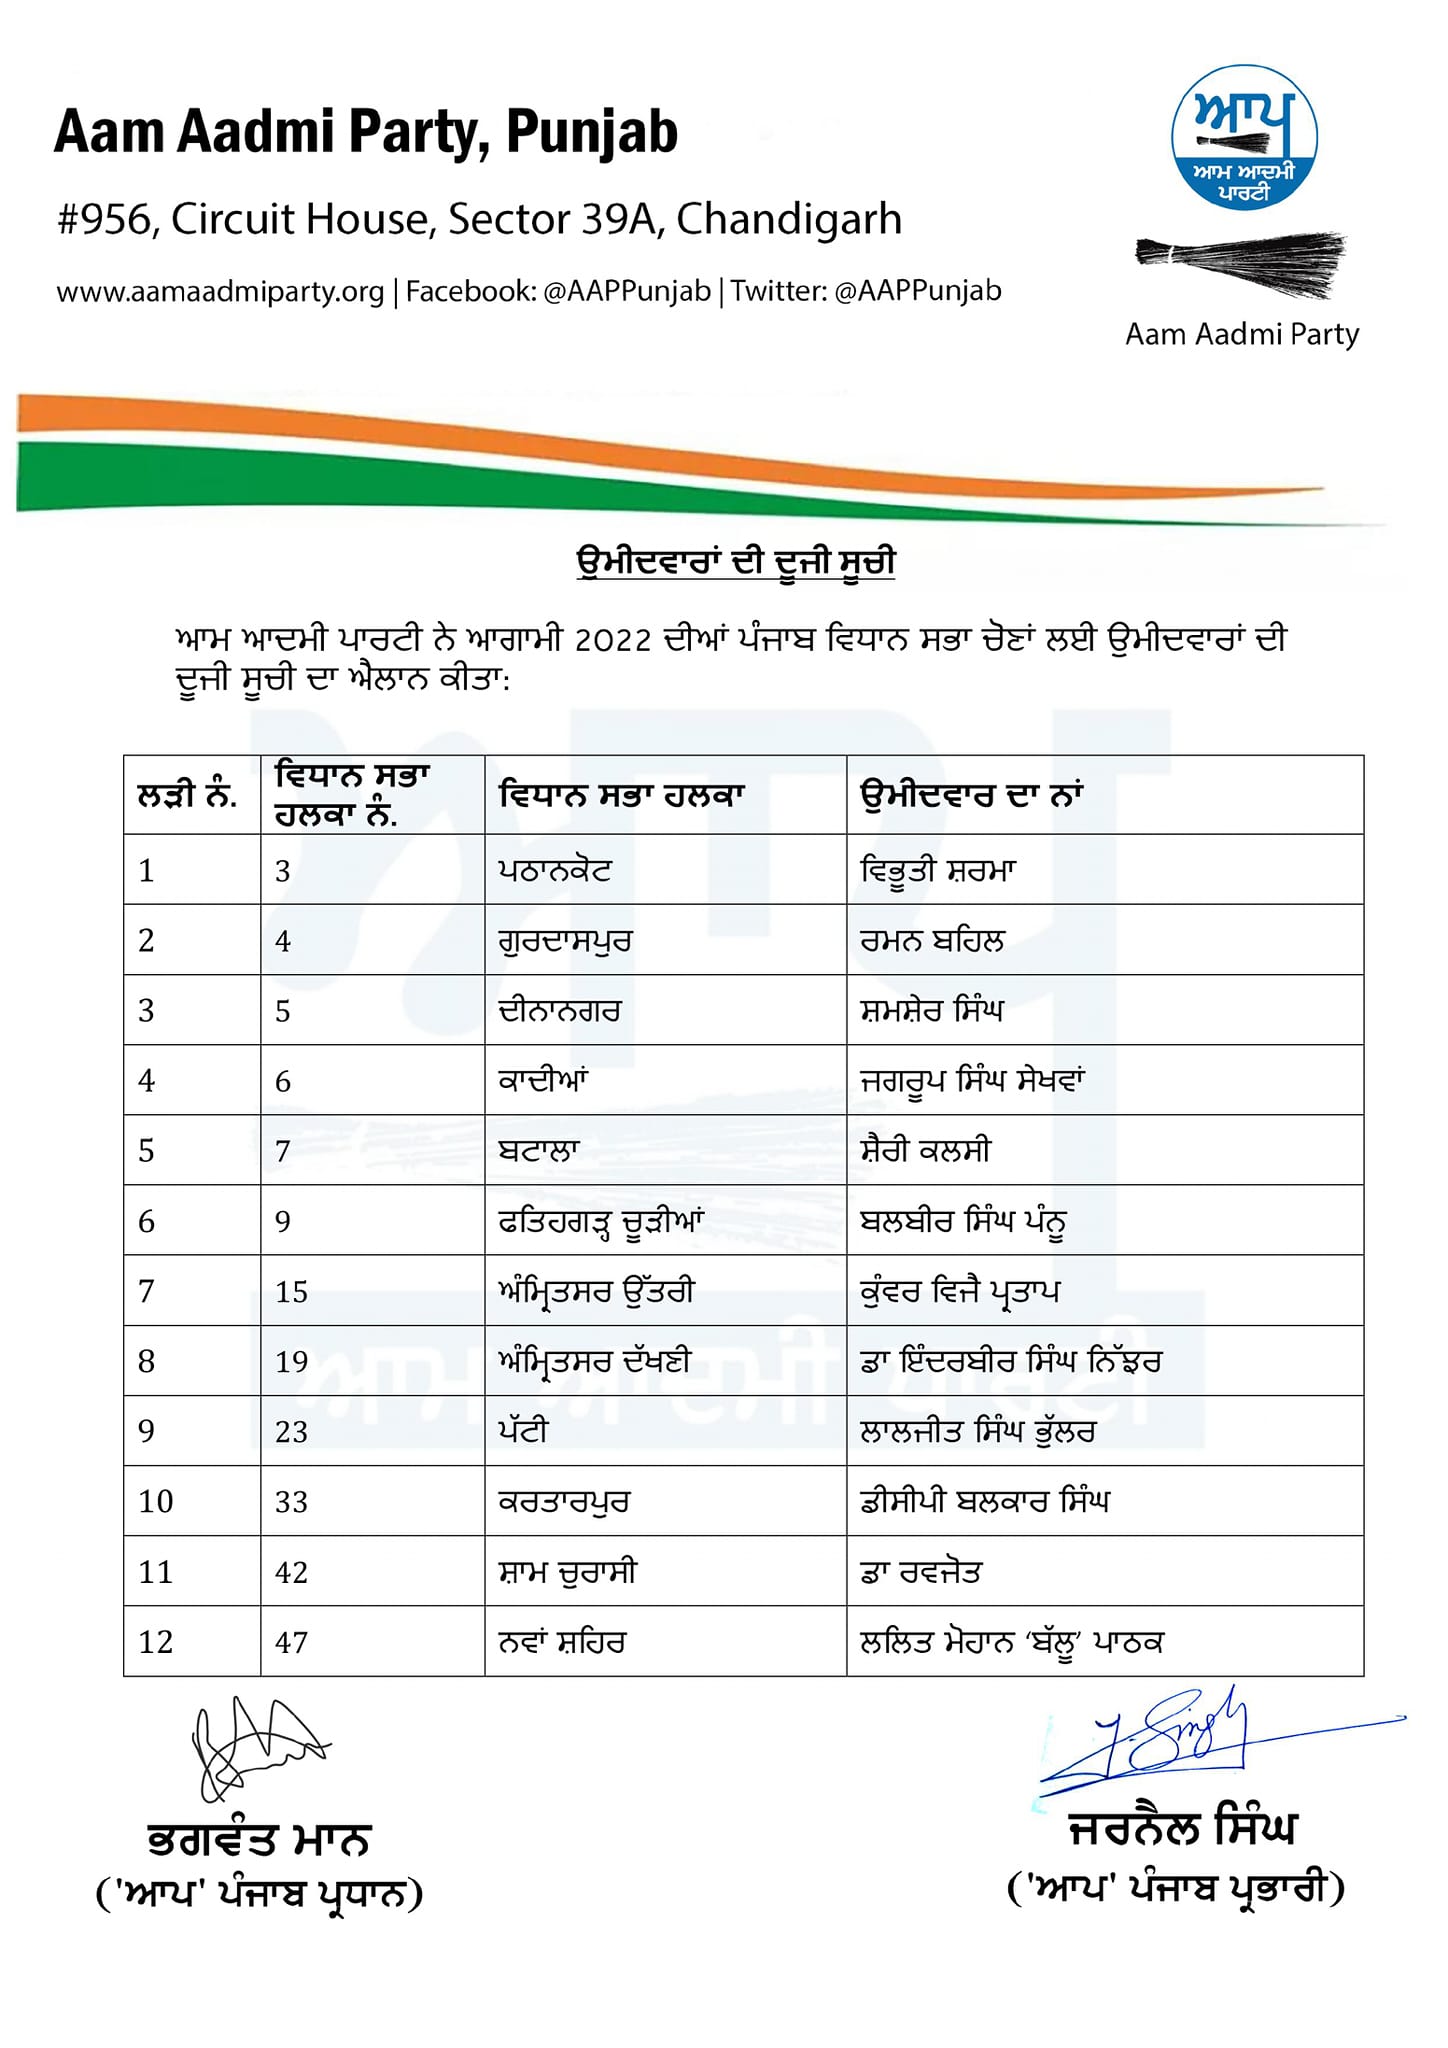 Aam Aadmi Party, Punjab
#956, Circuit House, Sector 39A, Chandigarh
www.aamaadmiparty.org | Facebook: @AAPPunjab | Twitter: @AAPPunjab
ਆਪ
ਆਮ ਆਦਮੀ
ਪਾਰਟੀ
Aam Aadmi Party
ਉਮੀਦਵਾਰਾਂ ਦੀ ਦੂਜੀ ਸੂਚੀ
ਆਮ ਆਦਮੀ ਪਾਰਟੀ ਨੇ ਆਗਾਮੀ 2022 ਦੀਆਂ ਪੰਜਾਬ ਵਿਧਾਨ ਸਭਾ ਚੋਣਾਂ ਲਈ ਉਮੀਦਵਾਰਾਂ ਦੀ
ਦੂਜੀ ਸੂਚੀ ਦਾ ਐਲਾਨ ਕੀਤਾ:
ਲੜੀ ਨੰ. ਵਿਧਾਨ ਸਭਾ ਹਲਕਾ ਨੰ. ਵਿਧਾਨ ਸਭਾ ਹਲਕਾ ਉਮੀਦਵਾਰ ਦਾ ਨਾਂ
1 3 ਪਠਾਨਕੋਟ ਵਿਭੂਤੀ ਸ਼ਰਮਾ
2 4 ਗੁਰਦਾਸਪੁਰ ਰਮਨ ਬਹਿਲ
3 5 ਦੀਨਾਨਗਰ ਸ਼ਮਸ਼ੇਰ ਸਿੰਘ
4 6 ਕਾਦੀਆਂ ਜਗਰੂਪ ਸਿੰਘ ਸੇਖਵਾਂ
5 7 ਬਟਾਲਾ ਸ਼ੈਰੀ ਕਲਸੀ
6 9 ਫਤਿਹਗੜ੍ਹ ਚੂੜੀਆਂ ਬਲਬੀਰ ਸਿੰਘ ਪੰਨੂ
7 15 ਅੰਮ੍ਰਿਤਸਰ ਉੱਤਰੀ ਕੁੰਵਰ ਵਿਜੈ ਪ੍ਰਤਾਪ
8 19 ਅੰਮ੍ਰਿਤਸਰ ਦੱਖਣੀ ਡਾ ਇੰਦਰਬੀਰ ਸਿੰਘ ਨਿੱਝਰ
9 23 ਪੱਟੀ ਲਾਲਜੀਤ ਸਿੰਘ ਭੁੱਲਰ
10 33 ਕਰਤਾਰਪੁਰ ਡੀਸੀਪੀ ਬਲਕਾਰ ਸਿੰਘ
11 42 ਸ਼ਾਮ ਚੁਰਾਸੀ ਡਾ ਰਵਜੋਤ
12 47 ਨਵਾਂ ਸ਼ਹਿਰ ਲਲਿਤ ਮੋਹਾਨ ‘ਬੱਲੂ’ ਪਾਠਕ
J. Singh
ਭਗਵੰਤ ਮਾਨ
('ਆਪ' ਪੰਜਾਬ ਪ੍ਰਧਾਨ)
ਜਰਨੈਲ ਸਿੰਘ
('ਆਪ' ਪੰਜਾਬ ਪ੍ਰਭਾਰੀ)